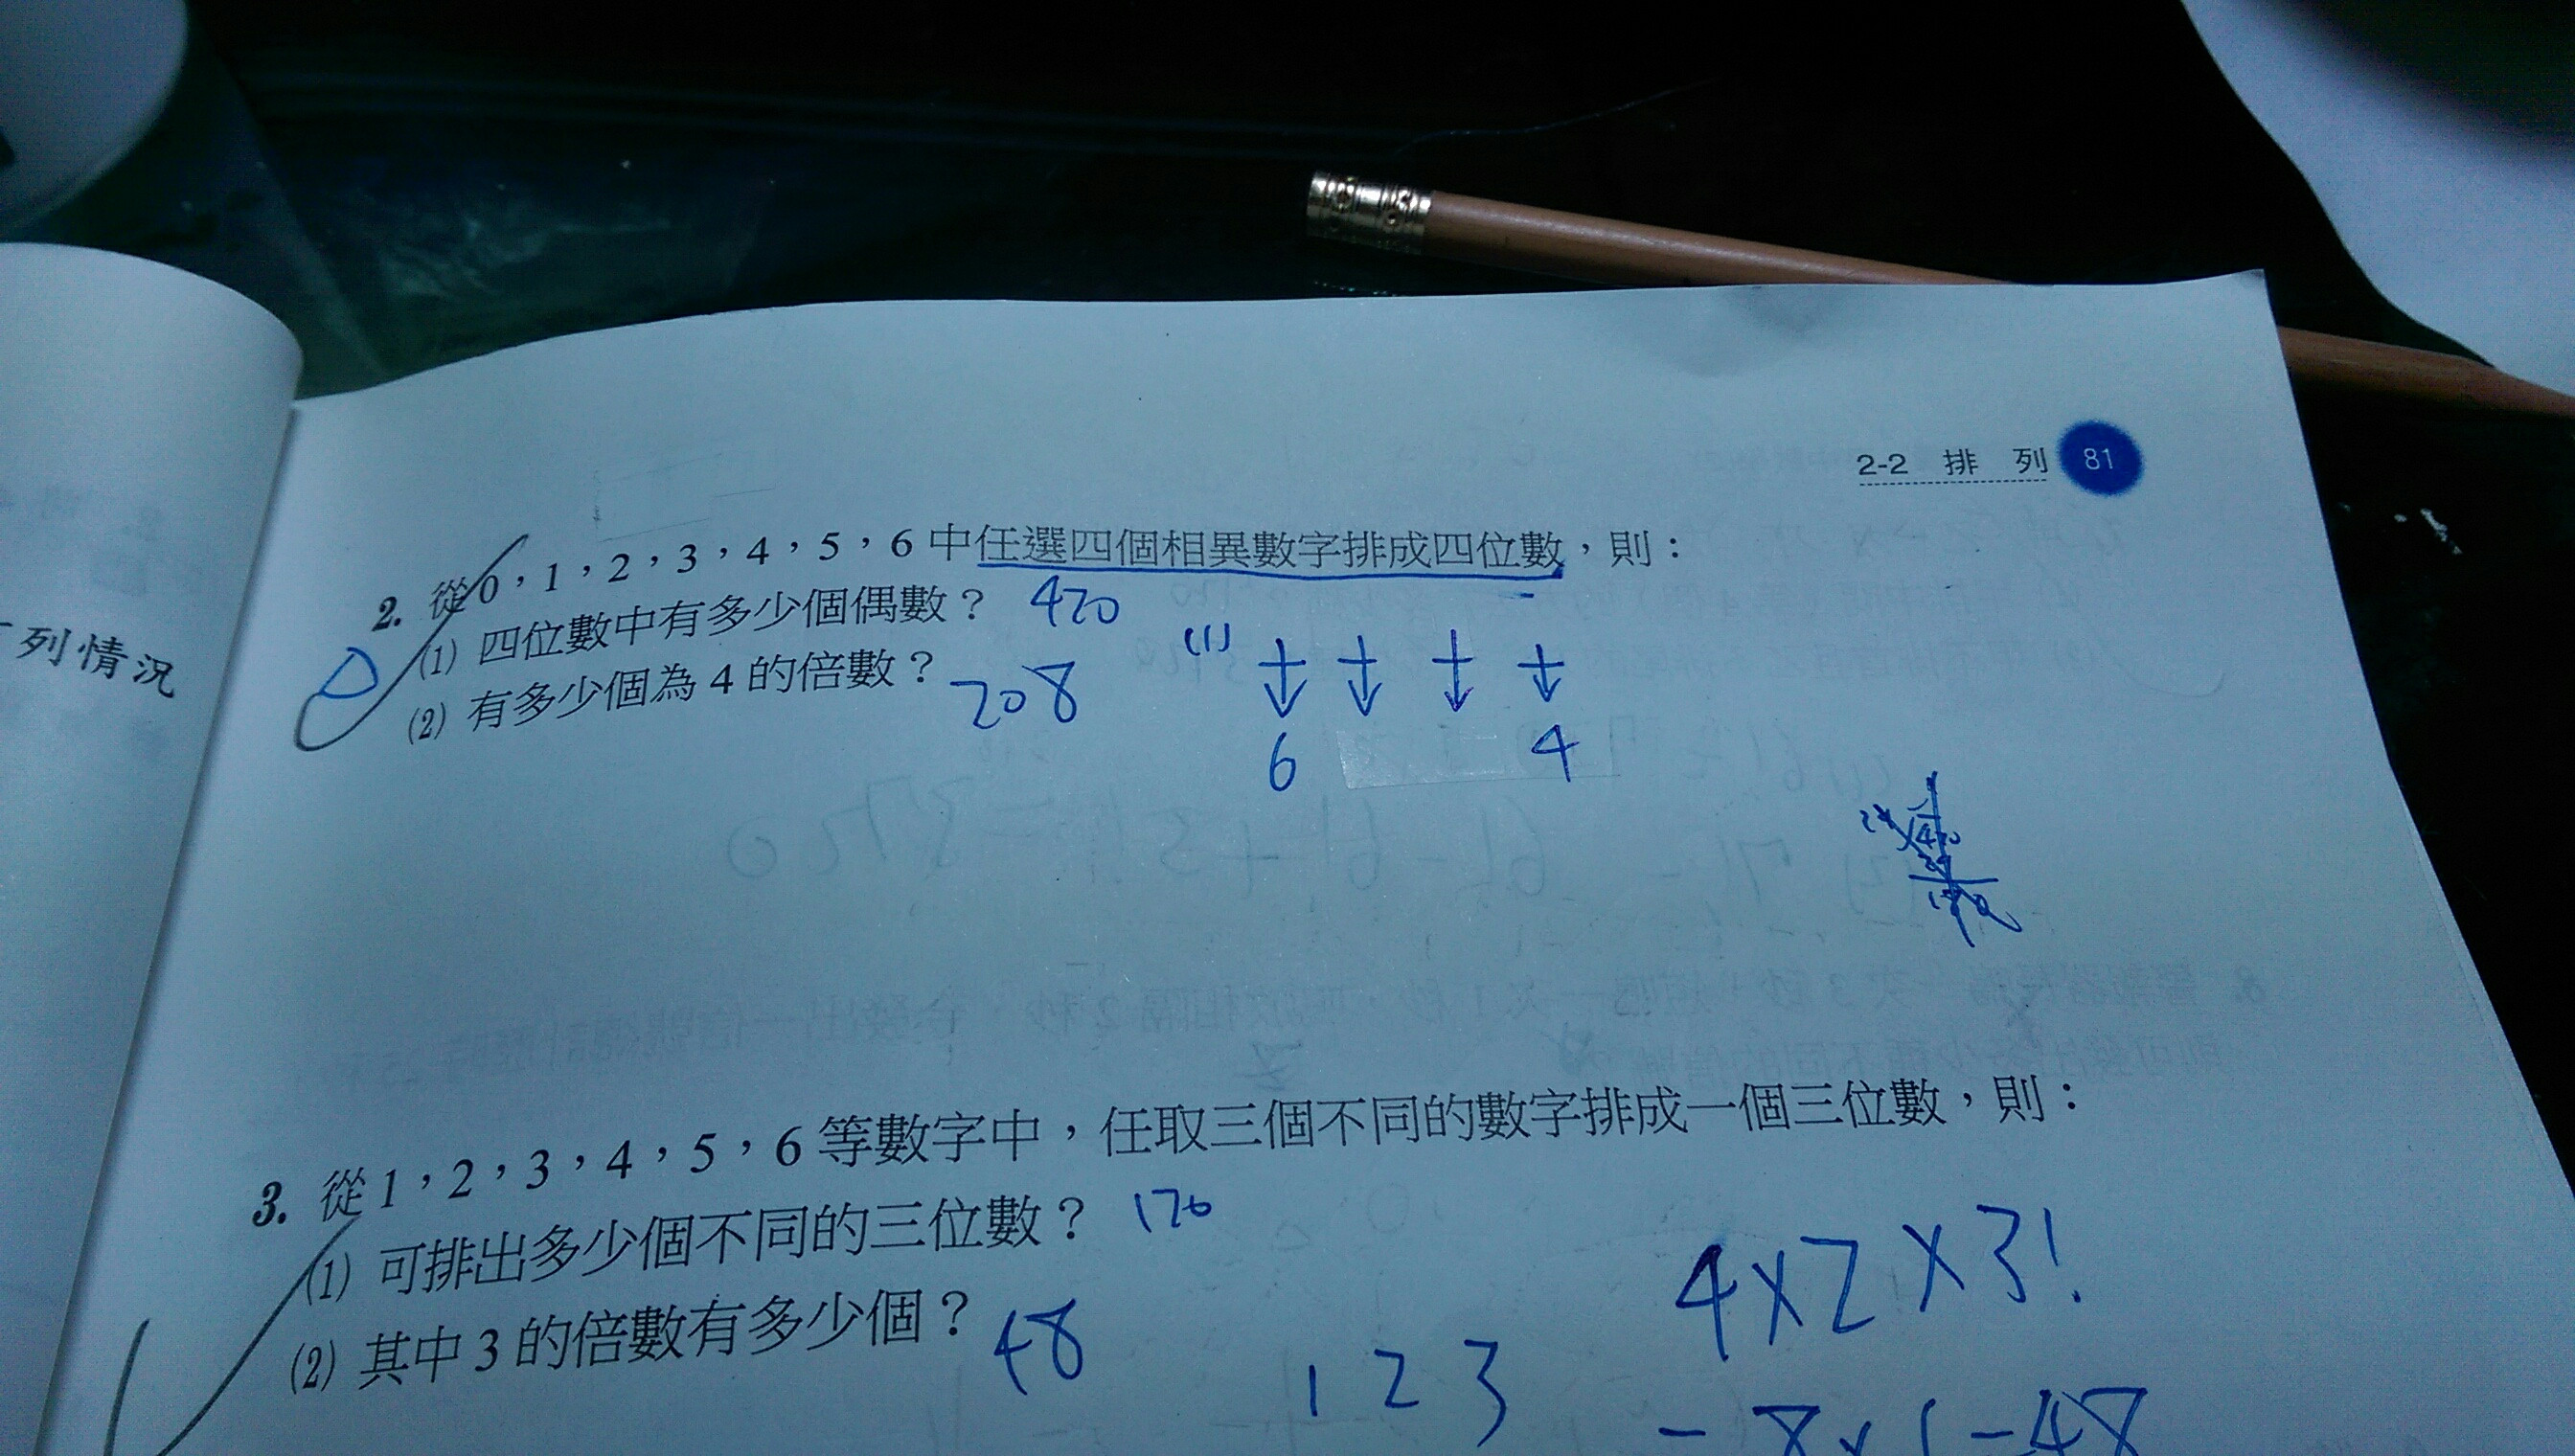 2-2 排列 81
2. 從0，1，2，3，4，5，6中任選四個相異數字排成四位數，則：
(1) 四位數中有多少個偶數？ 420
(2) 有多少個為4的倍數？ 208
(1)
6 4
列情況
3. 從1，2，3，4，5，6等數字中，任取三個不同的數字排成一個三位數，則：
(1) 可排出多少個不同的三位數？ 120
(2) 其中3的倍數有多少個？ 48
4×2×3!
1 2 3